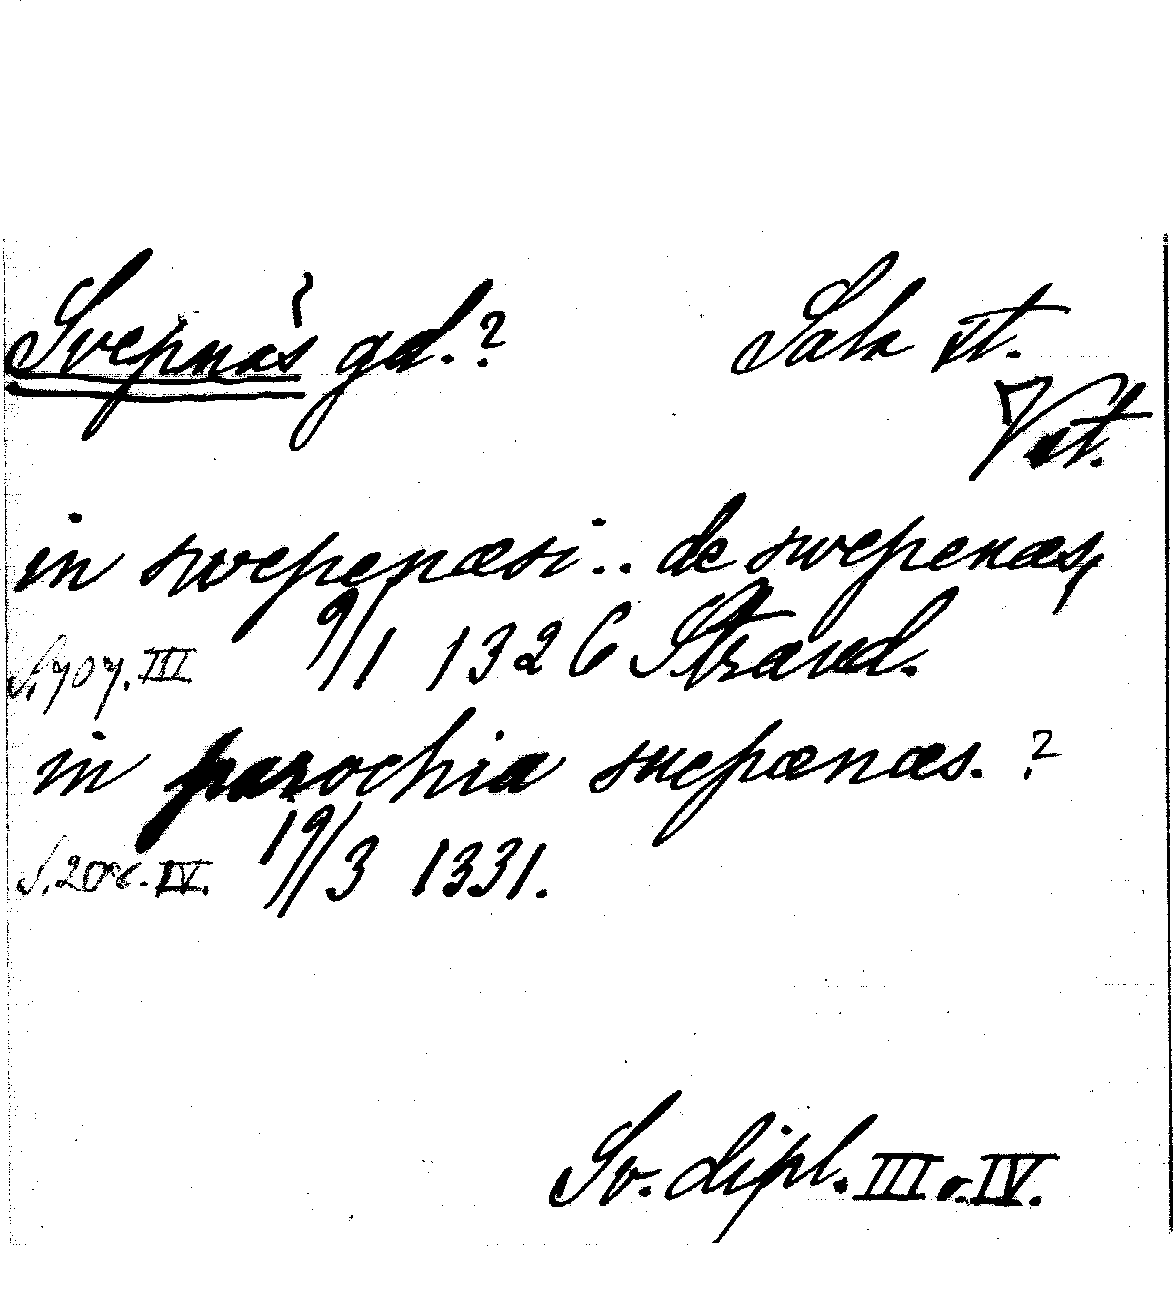 Svepnäs gd.? Sala st.
Vst.
in swepenæsi.. de swepenæs,
S. 707. III 9/1 1326 Strand.
in parochia suepænæs. ?
S. 208. IV. 19/3 1331.
Sv. dipl. III o. IV.